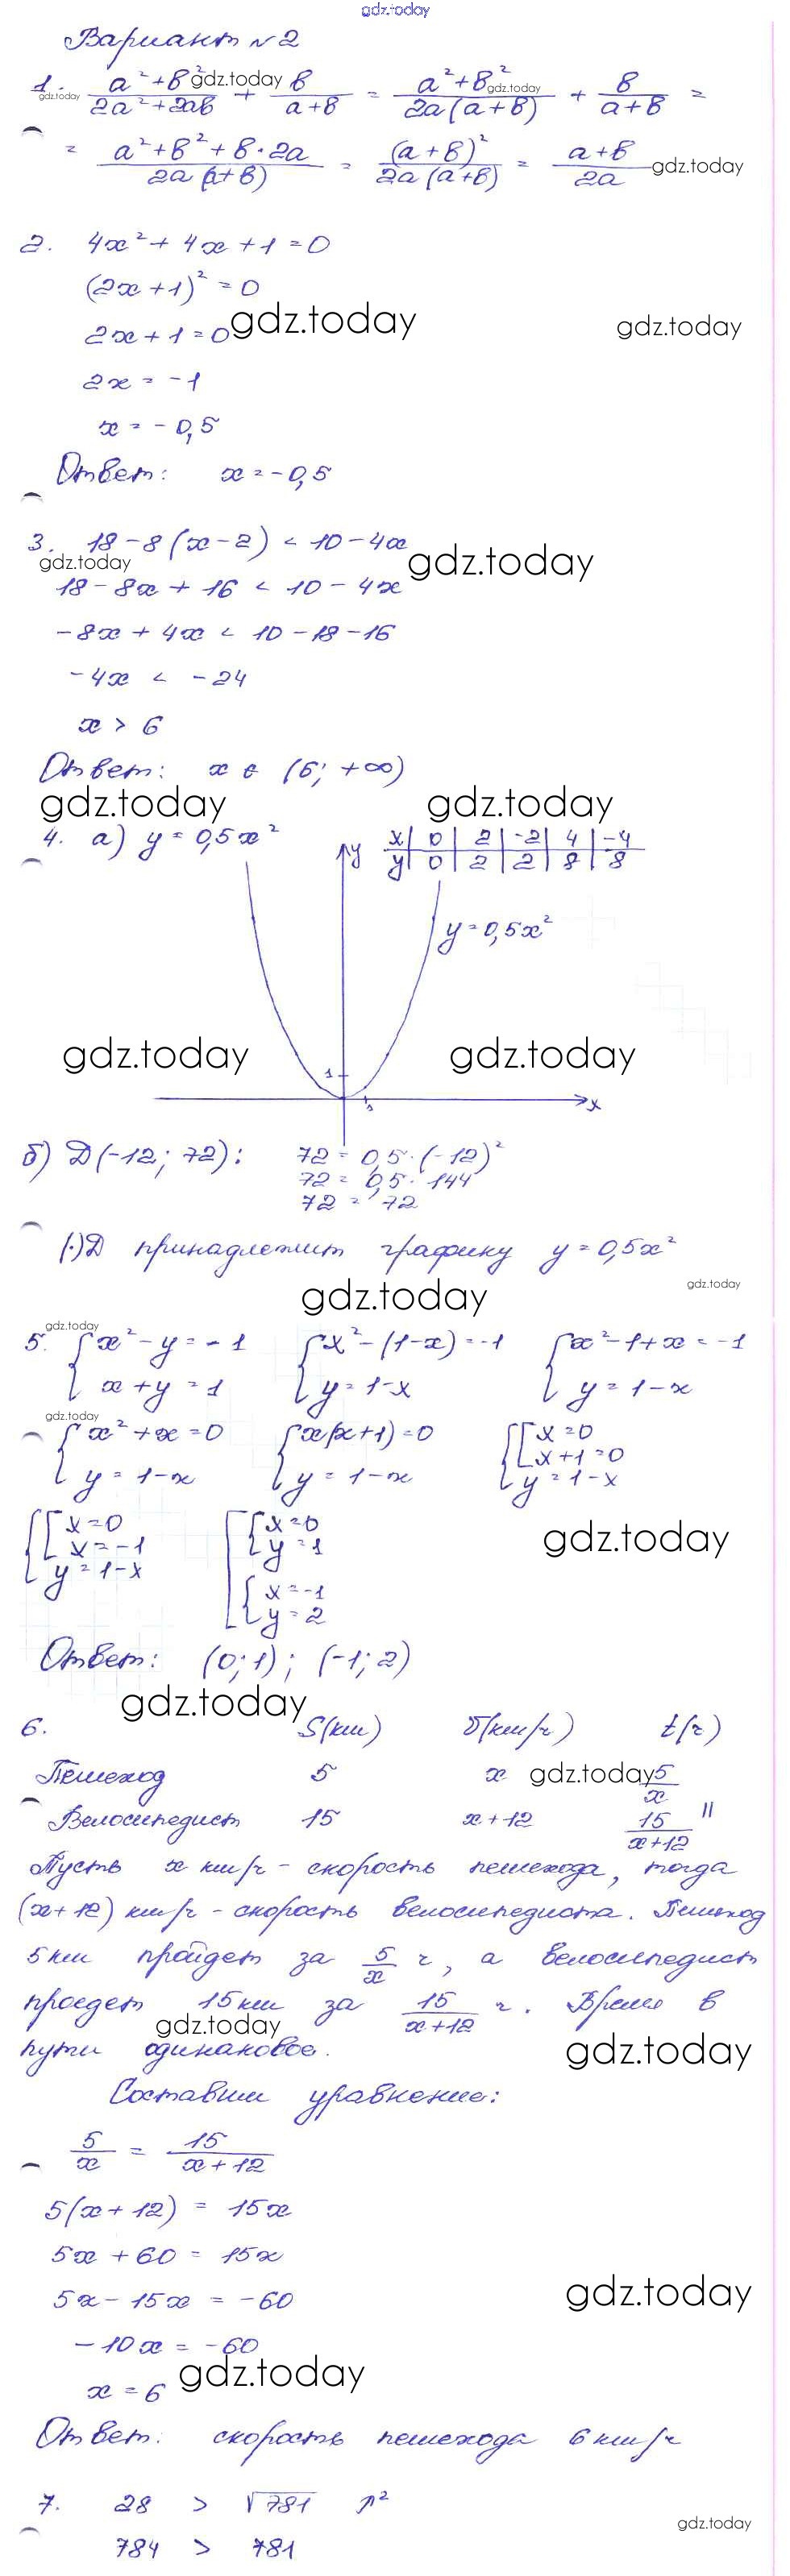 gdz.today
Вариант №2
1. (a²+b²)/(2a²+2ab) + b/(a+b) = (a²+b²)/(2a(a+b)) + b/(a+b) =
gdz.today gdz.today gdz.today
= (a²+b²+b·2a)/(2a(a+b)) = (a+b)²/(2a(a+b)) = (a+b)/(2a) gdz.today
2. 4x²+4x+1=0
(2x+1)²=0
2x+1=0 gdz.today gdz.today
2x=-1
x=-0,5
Ответ: x=-0,5
3. 18-8(x-2) < 10-4x gdz.today
gdz.today
18-8x+16 < 10-4x
-8x+4x < 10-18-16
-4x < -24
x > 6
Ответ: x ∈ (6; +∞)
gdz.today gdz.today
4. а) y=0,5x² y x | 0 | 2 | -2 | 4 | -4
y | 0 | 2 | 2 | 8 | 8
y=0,5x²
gdz.today gdz.today
1
x
б) D(-12; 72): 72=0,5·(-12)²
72=0,5·144
72=72
(·)D принадлежит графику y=0,5x²
gdz.today gdz.today
gdz.today
5. { x²-y=-1 { x²-(1-x)=-1 { x²-1+x=-1
x+y=1 y=1-x y=1-x
gdz.today
{ x²+x=0 { x(x+1)=0 { [ x=0
x+1=0
y=1-x y=1-x y=1-x
{ [ x=0 [ { x=0 gdz.today
x=-1 y=1
y=1-x
{ x=-1
y=2
Ответ: (0;1); (-1;2)
gdz.today
6. S(км) V(км/ч) t(ч)
Пешеход 5 x gdz.today 5/x
Велосипедист 15 x+12 15/(x+12) ||
Пусть x км/ч - скорость пешехода, тогда
(x+12) км/ч - скорость велосипедиста. Пешеход
5км пройдет за 5/x ч, а велосипедист
проедет 15км за 15/(x+12) ч. Время в
gdz.today
пути одинаковое. gdz.today
Составим уравнение:
5/x = 15/(x+12)
5(x+12) = 15x
5x+60 = 15x
5x-15x = -60 gdz.today
-10x = -60
x=6 gdz.today
Ответ: скорость пешехода 6км/ч
7. 28 > √781 ↑²
gdz.today
784 > 781